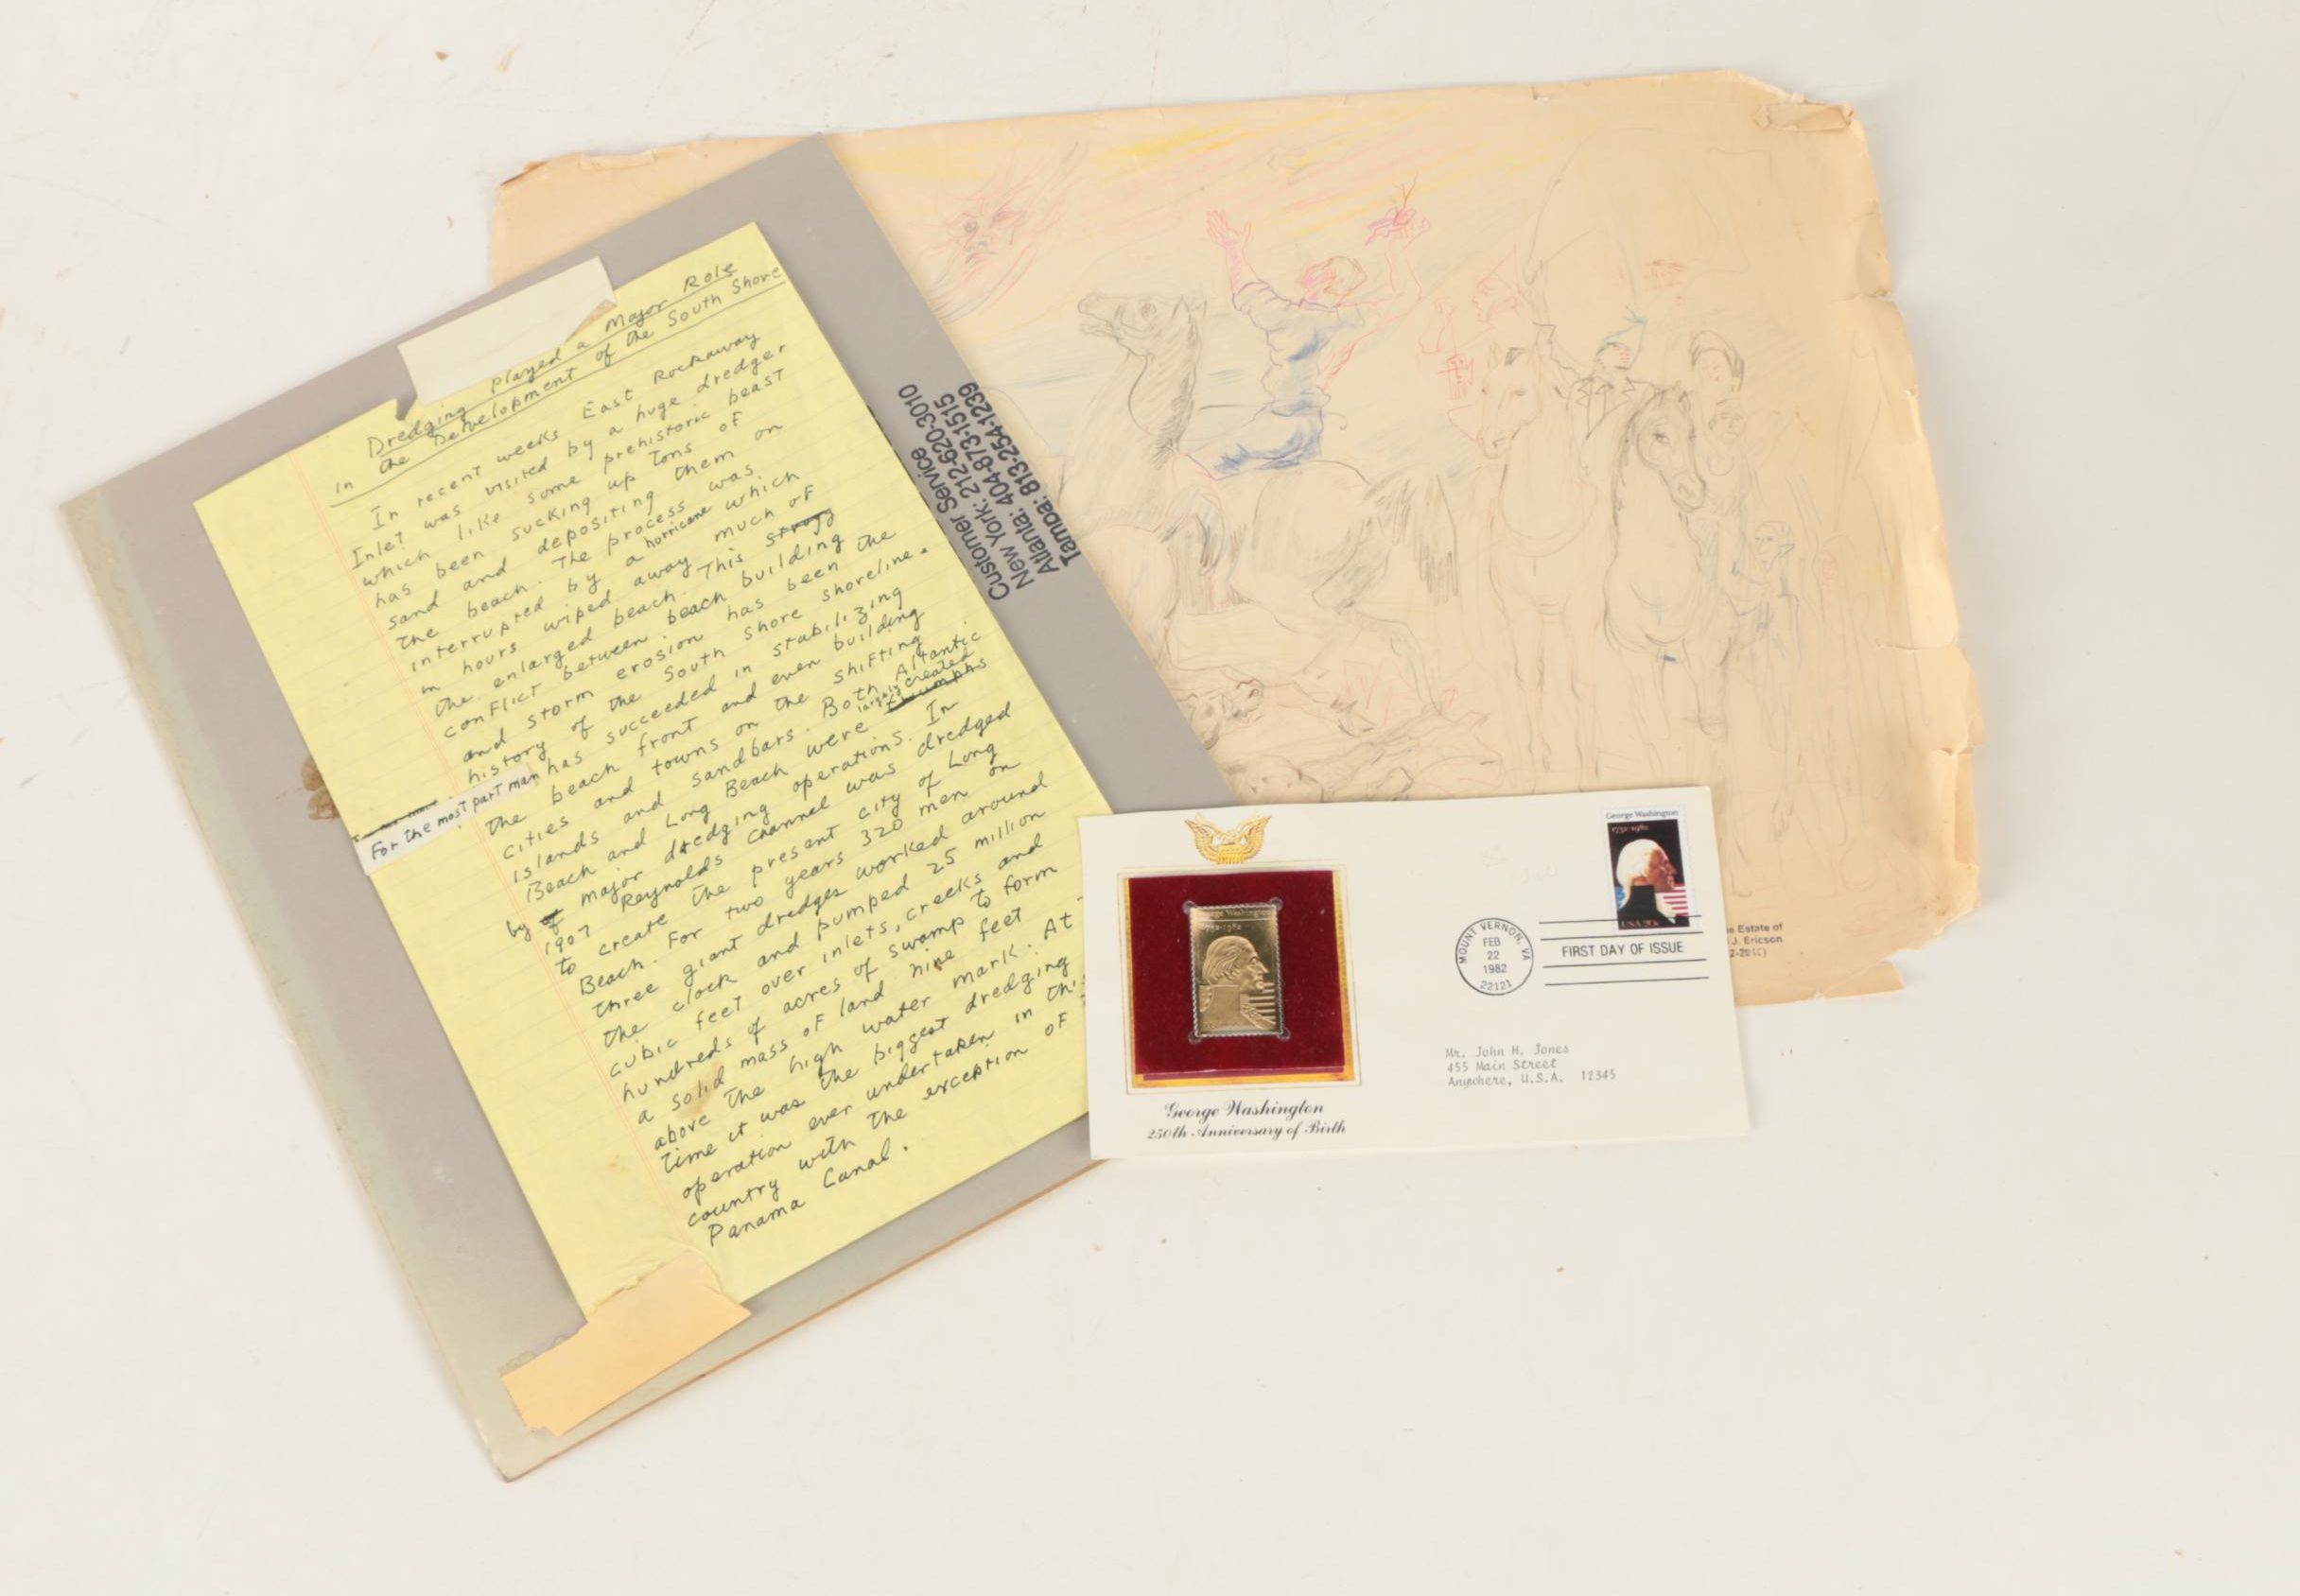 Dredging Played a Major Role
in the Development of the South Shore
In recent weeks East Rockaway
Inlet was visited by a huge dredger
which like some prehistoric beast
has been sucking up tons of
sand and depositing them on
the beach. The process was
interrupted by a horricane which
in hours wiped away much of
the enlarged beach. This strugg
conflict between beach building
and storm erosion has been the
history of the South Shore shoreline.
For the most part man has succeeded in stabilizing
the beach front and even building
cities and towns on the shifting
islands and sandbars. Both Altantic
Beach and Long Beach were largely created triumphs
by of major dredging operations. In
1907 Reynolds Channel was dredged
to create the present city of Long
Beach. For two years 320 men on
three giant dredges worked around
the clock and pumped 25 million
cubic feet over inlets, creeks and
hundreds of acres of swamp to form
a solid mass of land nine feet
above the high water mark. At
time it was the biggest dredging
operation ever undertaken in thi
country with the exception of
Panama Canal.
Customer Service
New York: 212-620-3010
Atlanta: 404-873-1515
Tampa: 813-254-1239
George Washington
1732-1982
USA 20c
MOUNT VERNON, VA
FEB
22
1982
22121
FIRST DAY OF ISSUE
George Washington
1732-1982
George Washington
250th Anniversary of Birth
Mr. John H. Jones
455 Main Street
Anywhere, U.S.A. 12345
e Estate of
J. Ericson
2-2010)